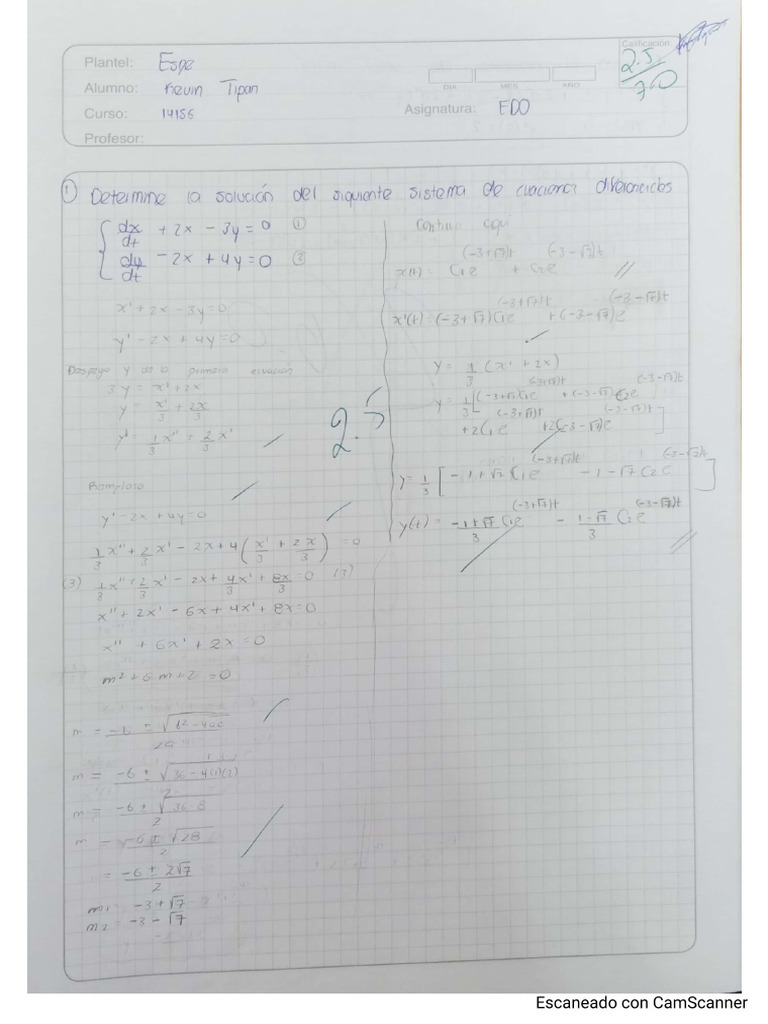 Plantel: Espe
Alumno: Kevin Tipan
Curso: 14156
Profesor:
DIA MES AÑO
Asignatura: EDO
Calificación:
2.5
7.0
① Determine la solución del siguiente sistema de
dx/dt + 2x - 3y = 0 ①
dy/dt - 2x + 4y = 0 ②
x' + 2x - 3y = 0
y' - 2x + 4y = 0
Despejo y de la primera ecuación
3y = x' + 2x
y = x'/3 + 2x/3
y' = 1/3 x'' + 2/3 x'
Remplazo
y' - 2x + 4y = 0
1/3 x'' + 2/3 x' - 2x + 4(x'/3 + 2x/3) = 0
(3) 1/3 x'' + 2/3 x' - 2x + 4/3 x' + 8x/3 = 0 (3)
x'' + 2x' - 6x + 4x' + 8x = 0
x'' + 6x' + 2x = 0
m² + 6m + 2 = 0
m = -b ± √(b² - 4ac) / 2a
m = -6 ± √(36 - 4(1)(2)) / 2
m = -6 ± √(36-8) / 2
m = -6 ± √28 / 2
= -6 ± 2√7 / 2
m1 = -3 + √7
m2 = -3 - √7
2.5
x(t) = C1e^(-3+√7)t + C2e^(-3-√7)t //
x'(t) = (-3+√7)C1e^(-3+√7)t + (-3-√7)e^(-3-√7)t
y = 1/3 (x' + 2x)
y = 1/3 [(-3+√7)C1e^(-3+√7)t + (-3-√7)C2e^(-3-√7)t
+ 2C1e^(-3+√7)t + 2C(-3-√7)e^(-3-√7)t ]
y = 1/3 [ -1+√7 C1e^(-3+√7)t - 1-√7 C2e^(-3-√7)t ]
y(t) = -1+√7/3 C1e^(-3+√7)t - 1-√7/3 C2e^(-3-√7)t //
Escaneado con CamScanner